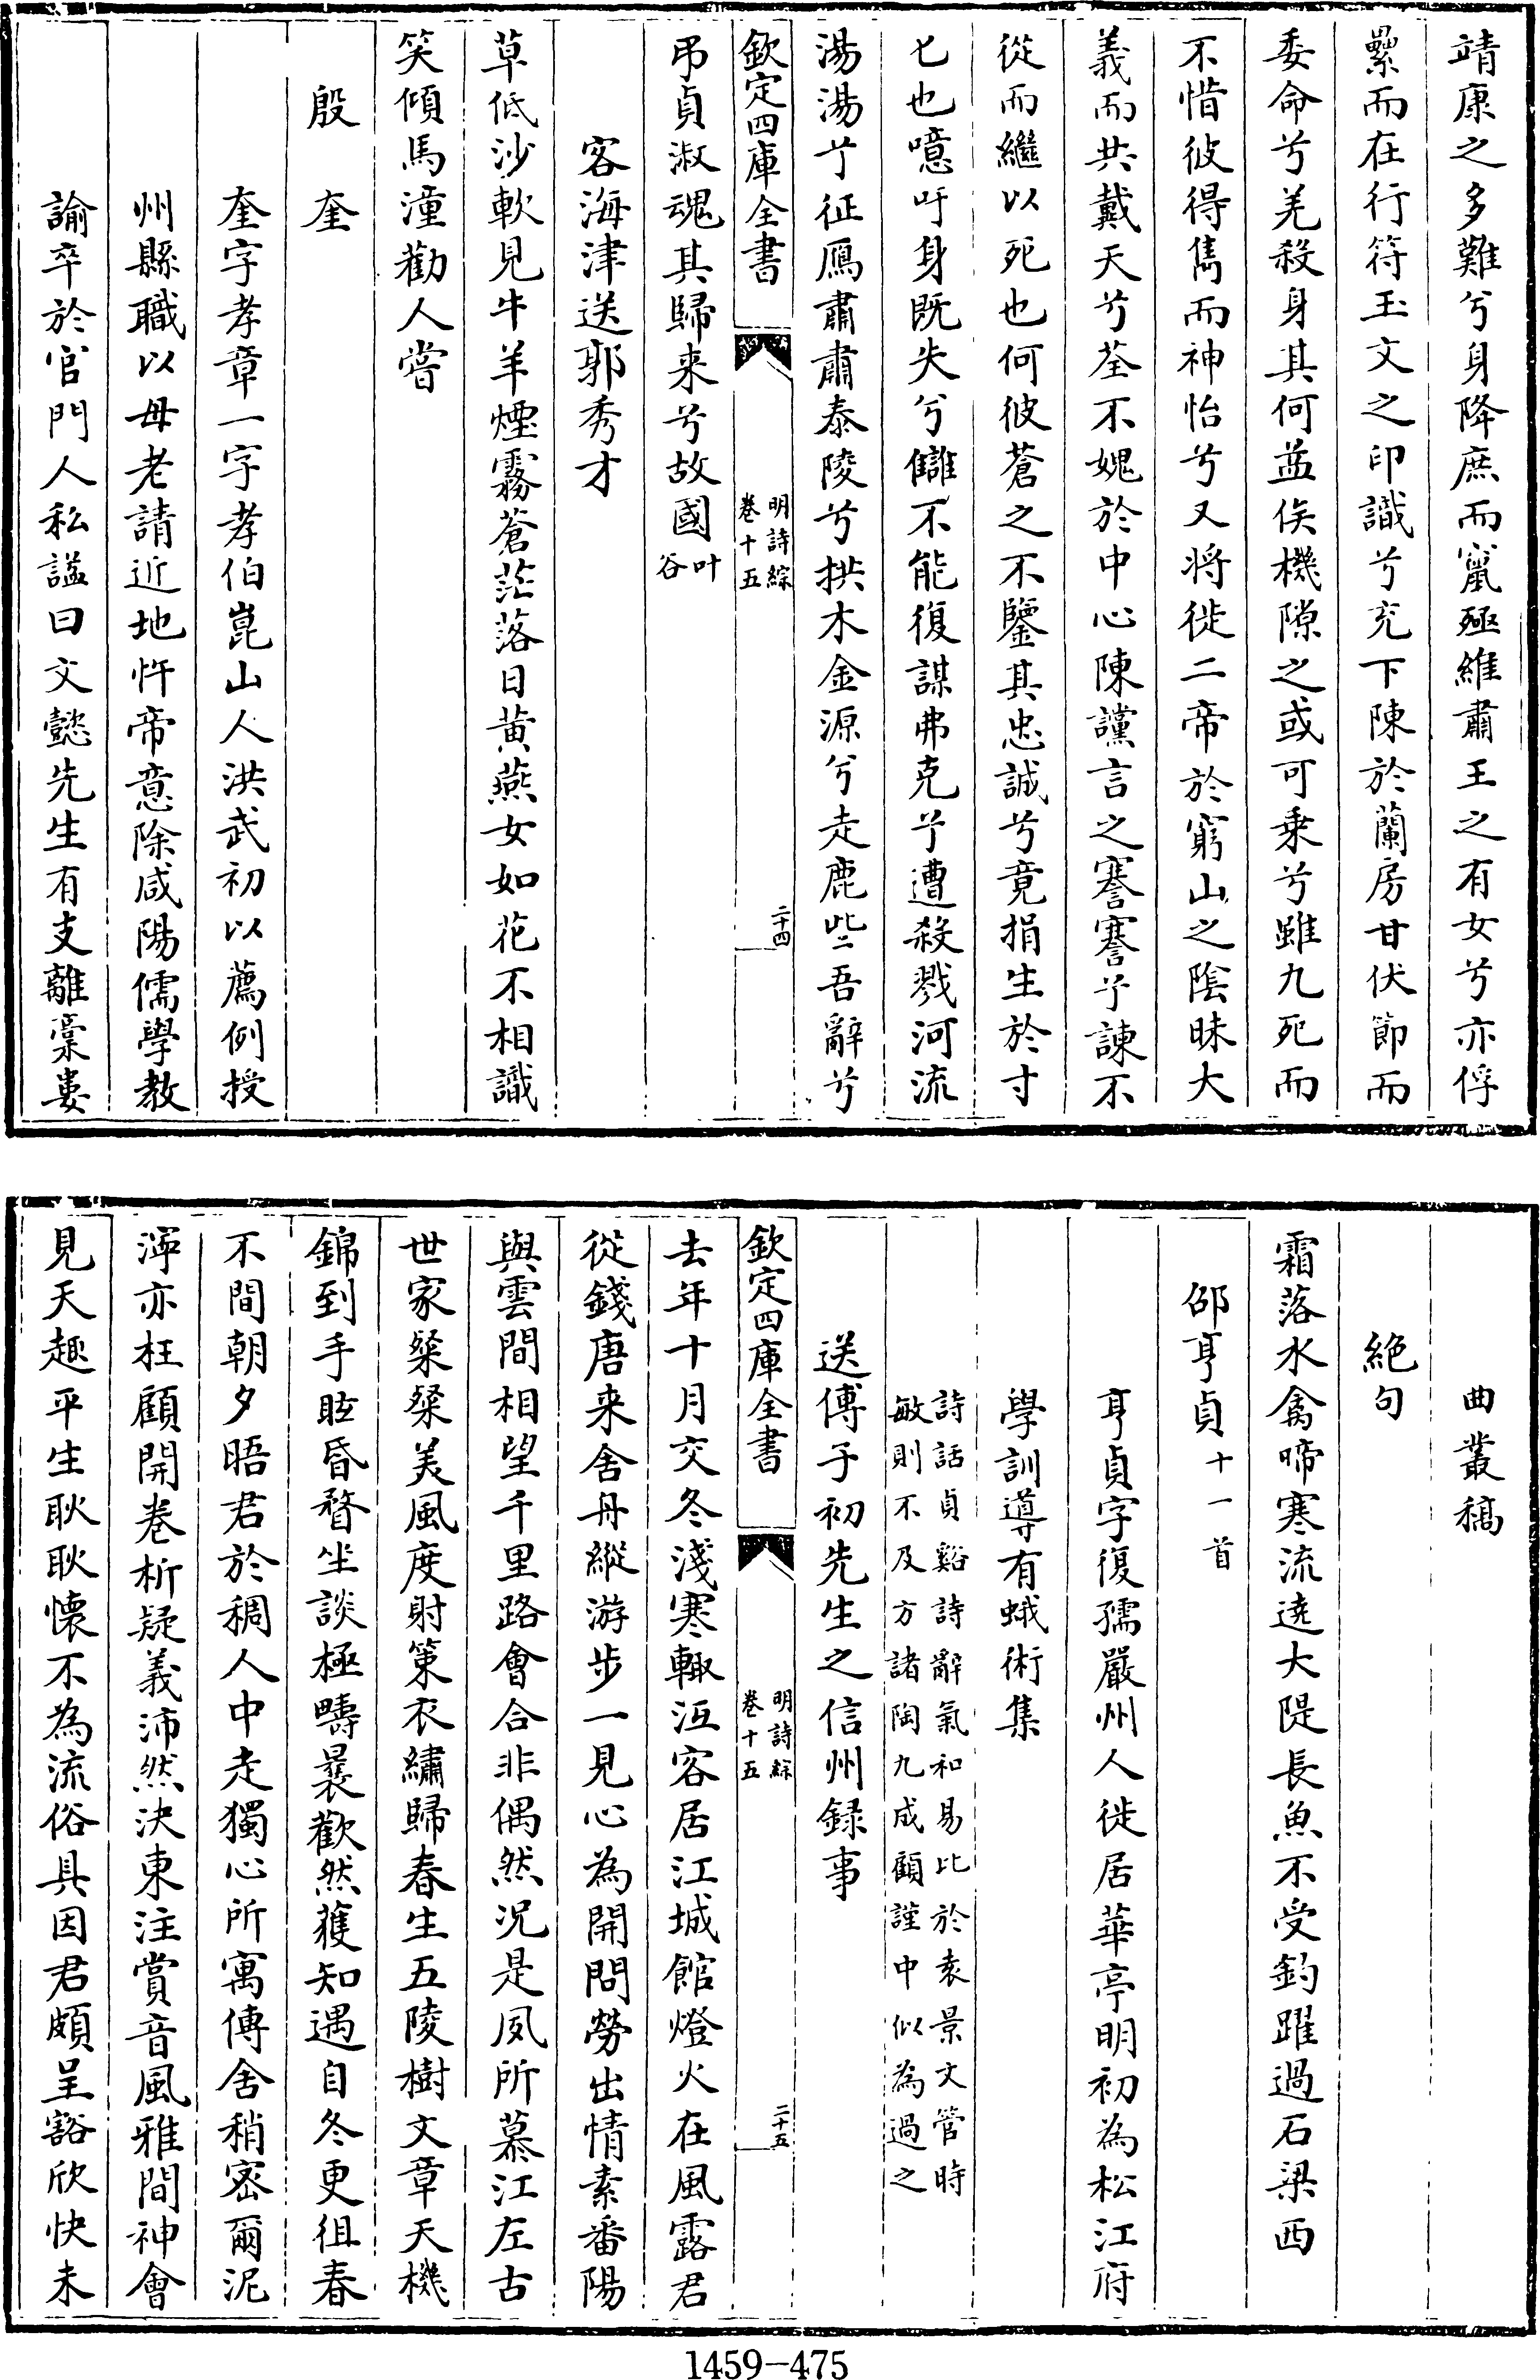 靖康之多難兮身降庶而竄殛維肅王之有女兮亦俘
纍而在行符玉文之印識兮充下陳於蘭房甘伏節而
委命兮羌殺身其何益俟機隙之或可乗兮雖九死而
不惜彼得雋而神怡兮又将徙二帝於窮山之陰昧大
義而共戴天兮荃不媿於中心陳讜言之謇謇兮諫不
從而繼以死也何彼蒼之不鑒其忠誠兮竟捐生於寸
匕也噫吁身既失兮讎不能復謀弗克兮遭殺戮河流
湯湯兮征鴈肅肅泰陵兮拱木金源兮走鹿些二吾辭兮
欽定四庫全書
明詩綜
卷十五
二十四
弔貞淑魂其歸来兮故國叶谷
客海津送郭秀才
草低沙軟見牛羊煙霧蒼茫落日黄燕女如花不相識
笑傾馬潼勸人嘗
殷奎
奎字孝章一字孝伯崑山人洪武初以薦例授
州縣職以母老請近地忤帝意除咸陽儒學教
諭卒於官門人私諡曰文懿先生有支離稾婁
曲叢稿
絶句
霜落水禽啼寒流遶大隄長魚不受釣躍過石梁西
邵亨貞十一首
亨貞字復孺嚴州人徙居華亭明初為松江府
學訓導有蛾術集
詩話貞谿詩辭氣和易比於袁景文管時
敏則不及方諸陶九成顧謹中似為過之
送傅子初先生之信州録事
欽定四庫全書
明詩綜
卷十五
二十五
去年十月交冬淺寒輙沍客居江城館燈火在風露君
從錢唐来舍舟縱游步一見心為開問勞出情素番陽
與雲間相望千里路會合非偶然況是夙所慕江左古
世家粲粲美風度射策衣繡歸春生五陵樹文章天機
錦到手眩昏瞀坐談極疇曩歡然獲知遇自冬更徂春
不間朝夕晤君於稠人中走獨心所寓傳舍稍密爾泥
濘亦枉顧開巻析疑義沛然決東注賞音風雅間神會
見天趣平生耿耿懐不為流俗具因君頗呈豁欣快未
1459-475